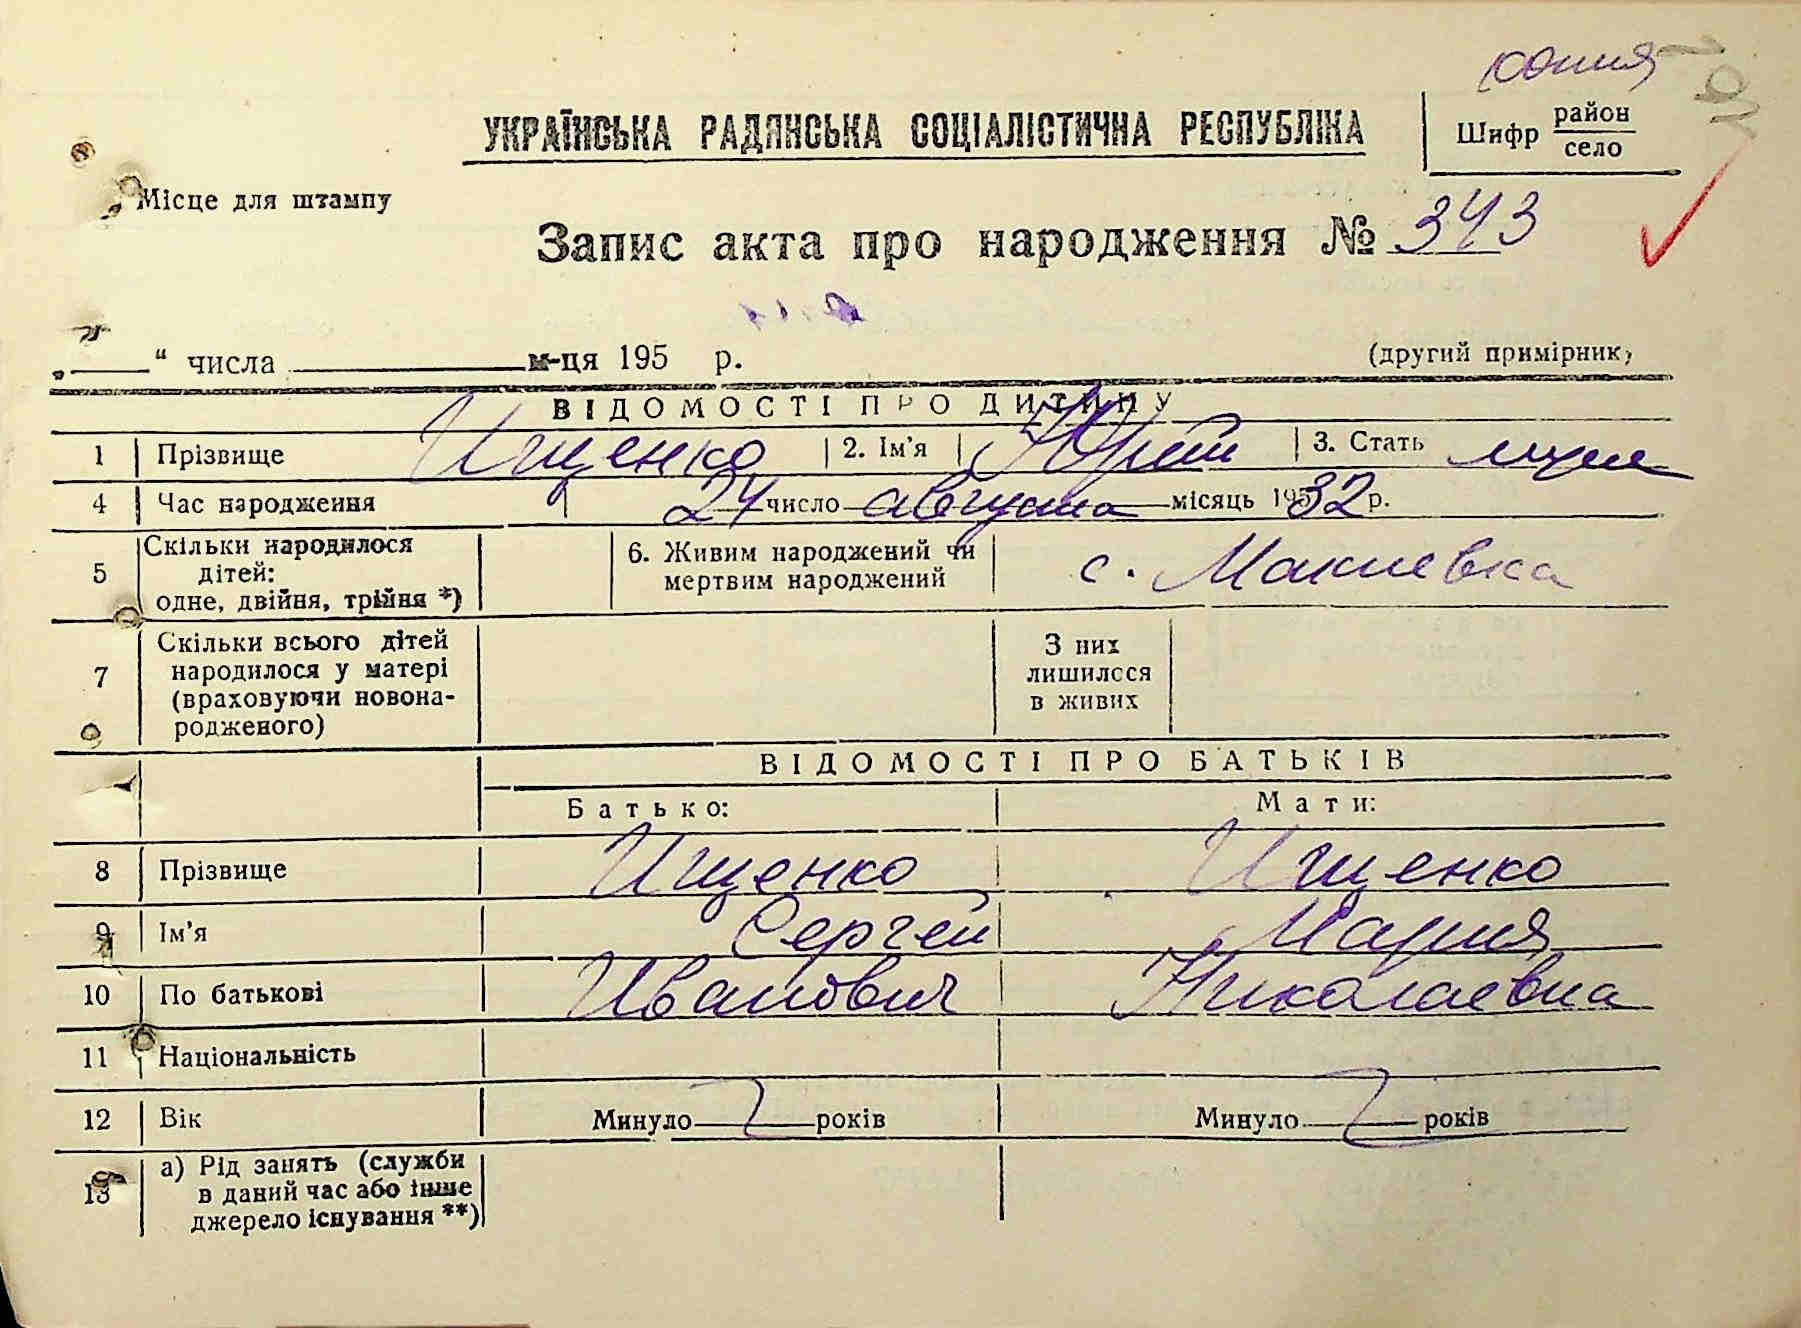 копия
УКРАЇНСЬКА РАДЯНСЬКА СОЦІАЛІСТИЧНА РЕСПУБЛІКА
Шифр район
село
Місце для штампу
Запис акта про народження № 343
„ “ числа м-ця 195 р. (другий примірник)
ВІДОМОСТІ ПРО ДИТИНУ
1 Прізвище Ищенко 2. Ім'я Юрий 3. Стать муж
4 Час народження 24 число августа місяць 1932 р.
5 Скільки народилося дітей: одне, двійня, трійня *) 6. Живим народжений чи мертвим народжений с. Макиевка
7 Скільки всього дітей народилося у матері (враховуючи новонародженого) З них лишилося в живих
ВІДОМОСТІ ПРО БАТЬКІВ
Батько: Мати:
8 Прізвище Ищенко Ищенко
9 Ім'я Сергей Мария
10 По батькові Иванович Николаевна
11 Національність
12 Вік Минуло років Минуло років
13 а) Рід занять (служби в даний час або інше джерело існування **)